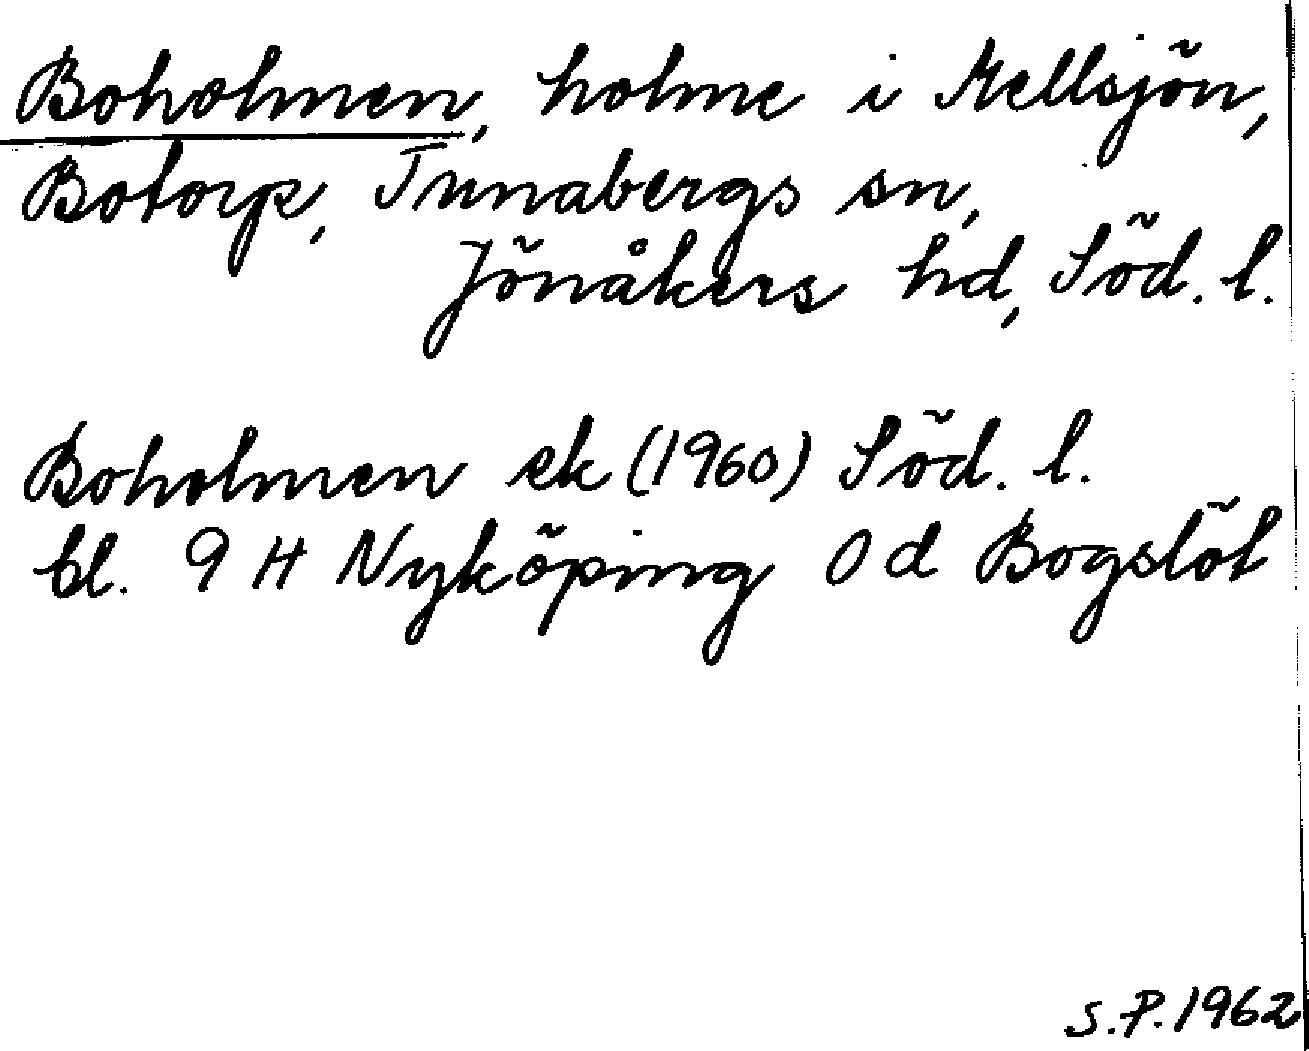 Boholmen, holme i Mellsjön,
Botorp, Tunabergs sn,
Jönåkers hd, Söd. l.
Boholmen ek (1960) Söd. l.
bl. 9 H Nyköping 0 d Bogslöt
S.P. 1962